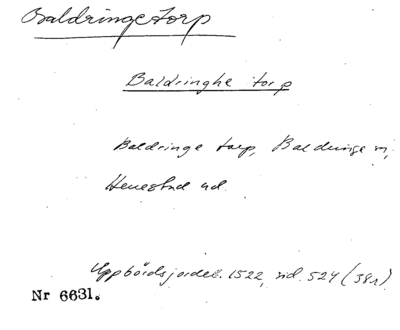 Baldringetorp
Baldringhe torp
Baldringe torp, Baldringe sn,
Herrestad hd.
Uppbördsjordeb. 1522, sid. 524 (581)
Nr 6631.